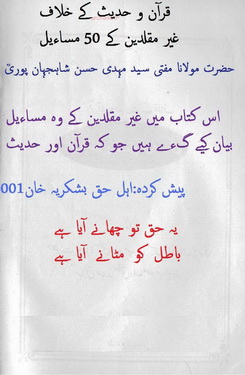 قرآن و حدیث کے خلاف
غیر مقلدین کے 50 مساءیل
حضرت مولانا مفتی سید مہدی حسن شاہجہان پوریؒ
اس کتاب میں غیر مقلدین کے وہ مساءیل
بیان کیے گءے ہیں جو کہ قرآن اور حدیث
پیش کردہ:اہل حق بشکریہ خان001
یہ حق تو چھانے آیا ہے
باطل کو مٹانے آیا ہے